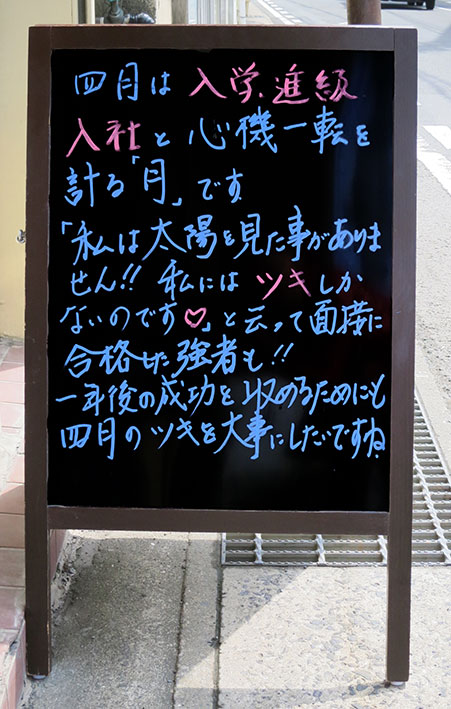 四月は入学、進級
入社と心機一転を
計る「月」です
「私は太陽を見た事がありま
せん!! 私にはツキしか
ないのです♡」と云って面接に
合格した強者も!!
一年後の成功を収めるためにも
四月のツキを大事にしたいですね